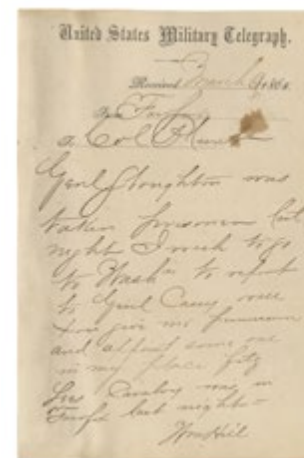 United States Military Telegraph.
Received March 9 186
From Fairfax
To Col
Genl Stoughton was
taken prisoner last
night I wish to go
to Washn to report
to Genl Casey will
you give me permission
and appoint some one
in my place Fitz
Lees Cavalry was in
Fairfx last night